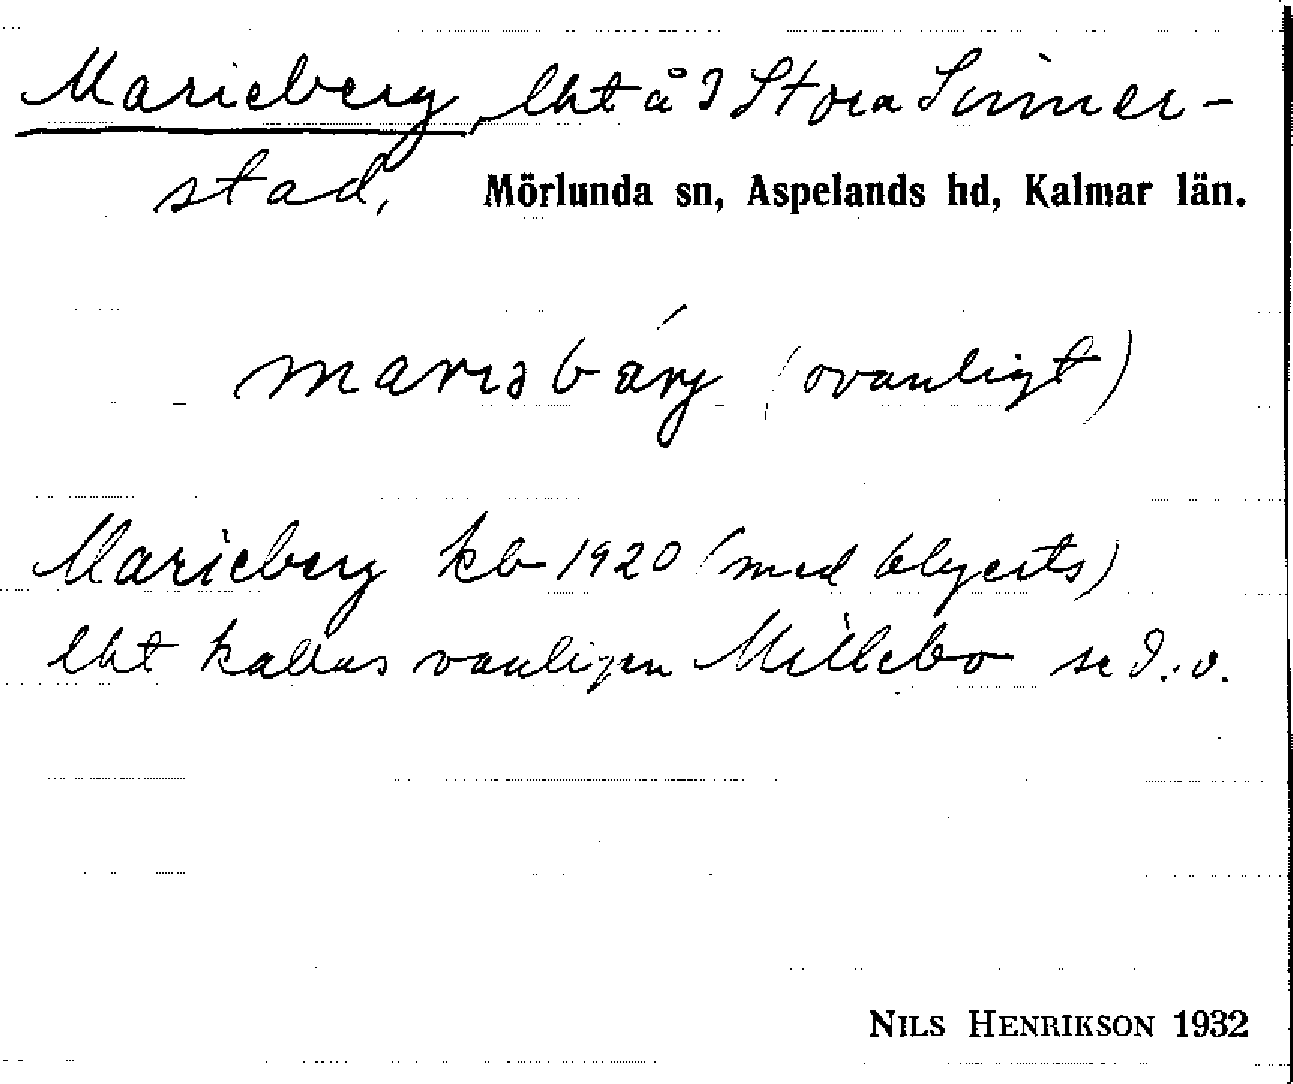 Marieberg, lht å I Stora Sinner-
stad, Mörlunda sn, Aspelands hd, Kalmar län.
marısbärj (ovanligt)
Marieberg kb 1920 (med blyerts)
lht kallas vanligen Millebo se d. o.
NILS HENRIKSON 1932